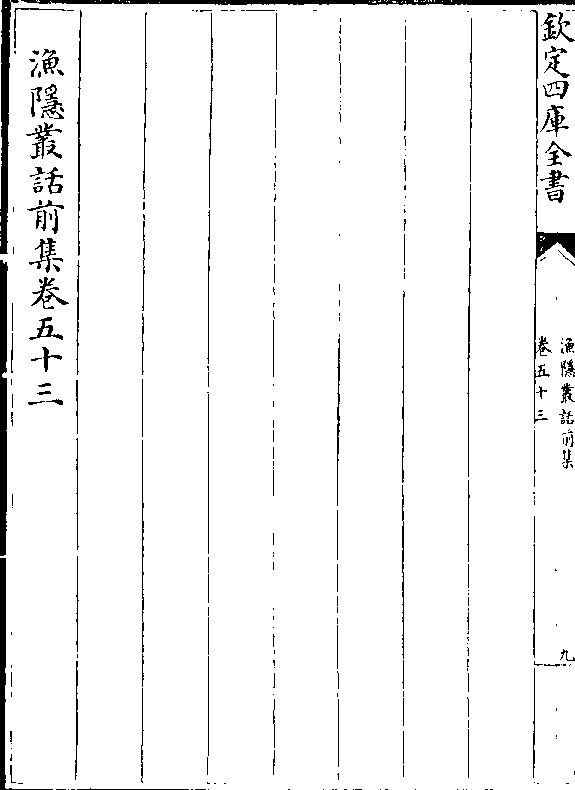 欽定四庫全書
漁隱叢話前集
卷五十三
九
漁隱叢話前集卷五十三